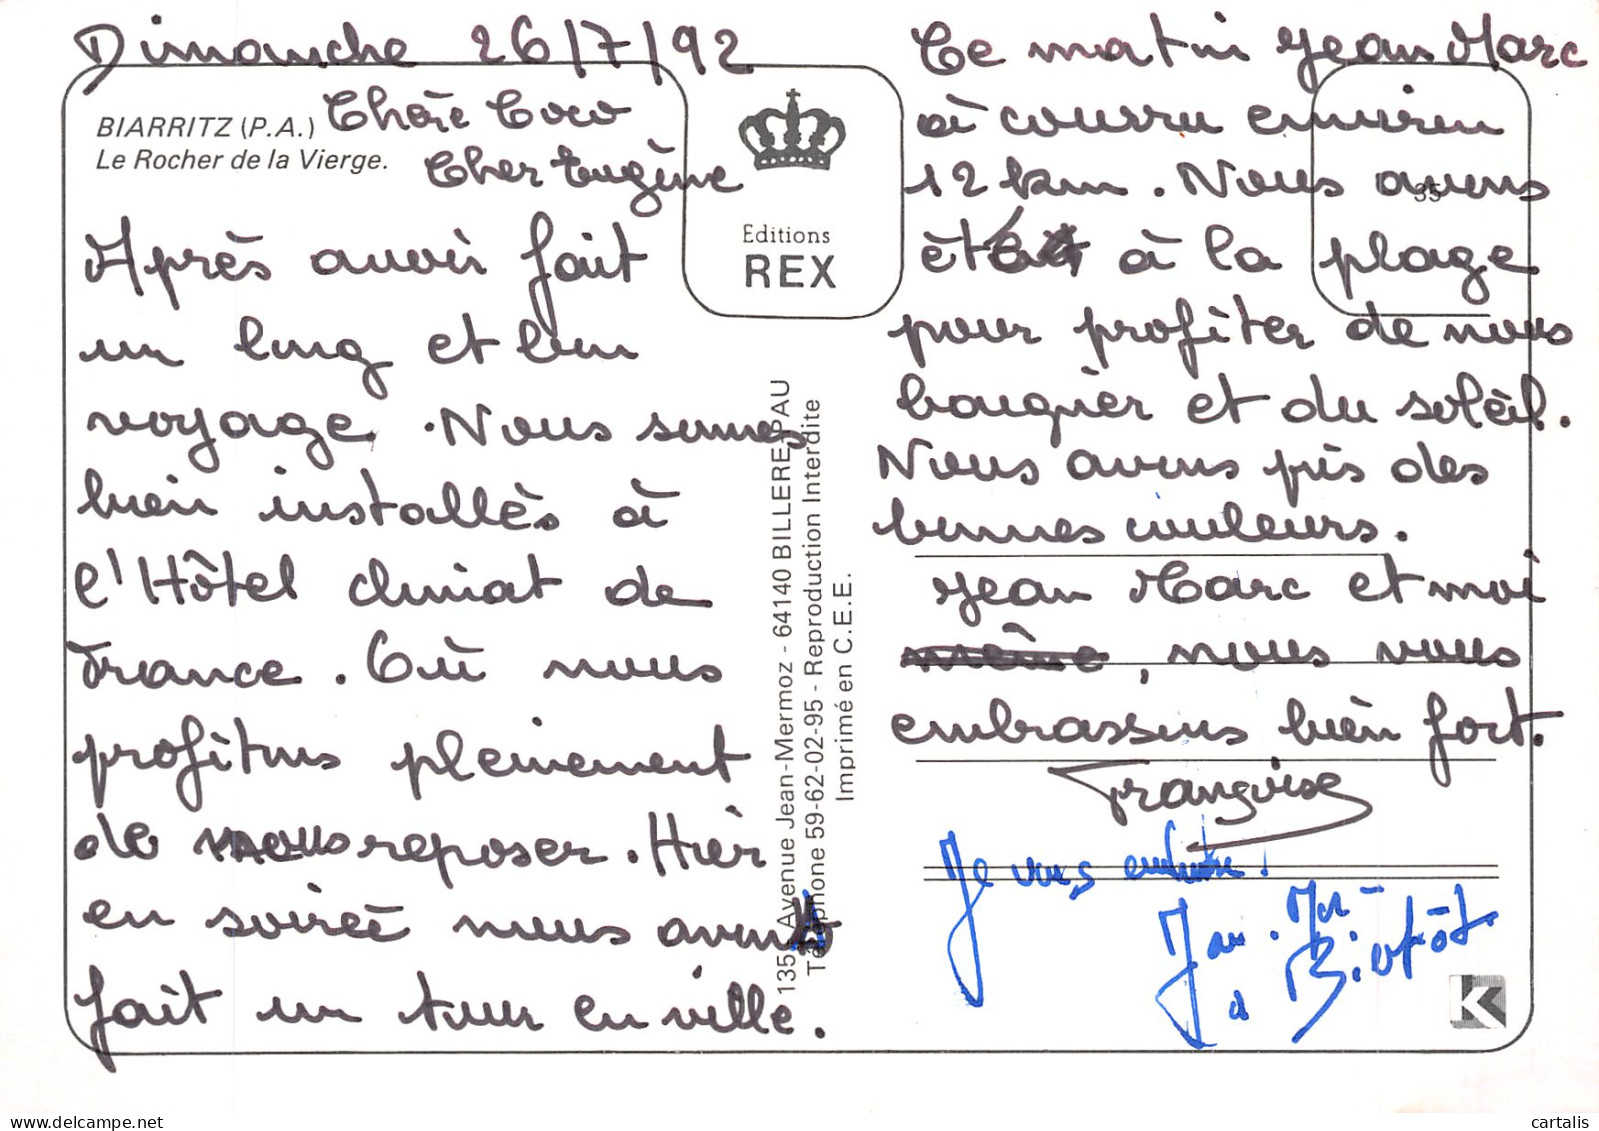 Dimanche 26/7/92
BIARRITZ (P.A.)
Le Rocher de la Vierge.
Chère Coco
Cher Eugène
Après avoir fait
un long et bon
voyage. Nous sommes
bien installès à
l'Hôtel climat de
France. Où nous
profitons pleinement
de nous reposer. Hièr
en soireé nous avons
fait un tour en ville.
Editions
REX
135, Avenue Jean-Mermoz - 64140 BILLERE/PAU
Téléphone 59-62-02-95 - Reproduction Interdite
Imprimé en C.E.E.
35
Ce matin Jean Marc
à couru environ
12 km. Nous avons
èté à la plage
pour profiter de nous
baigner et du solèil.
Nous avons pris des
bonnes couleurs.
Jean Marc et moi
même, nous vous
embrassons bien fort.
Françoise
Je vous embrasse.
Jean-Mc
à Bientôt.
K
cartalis